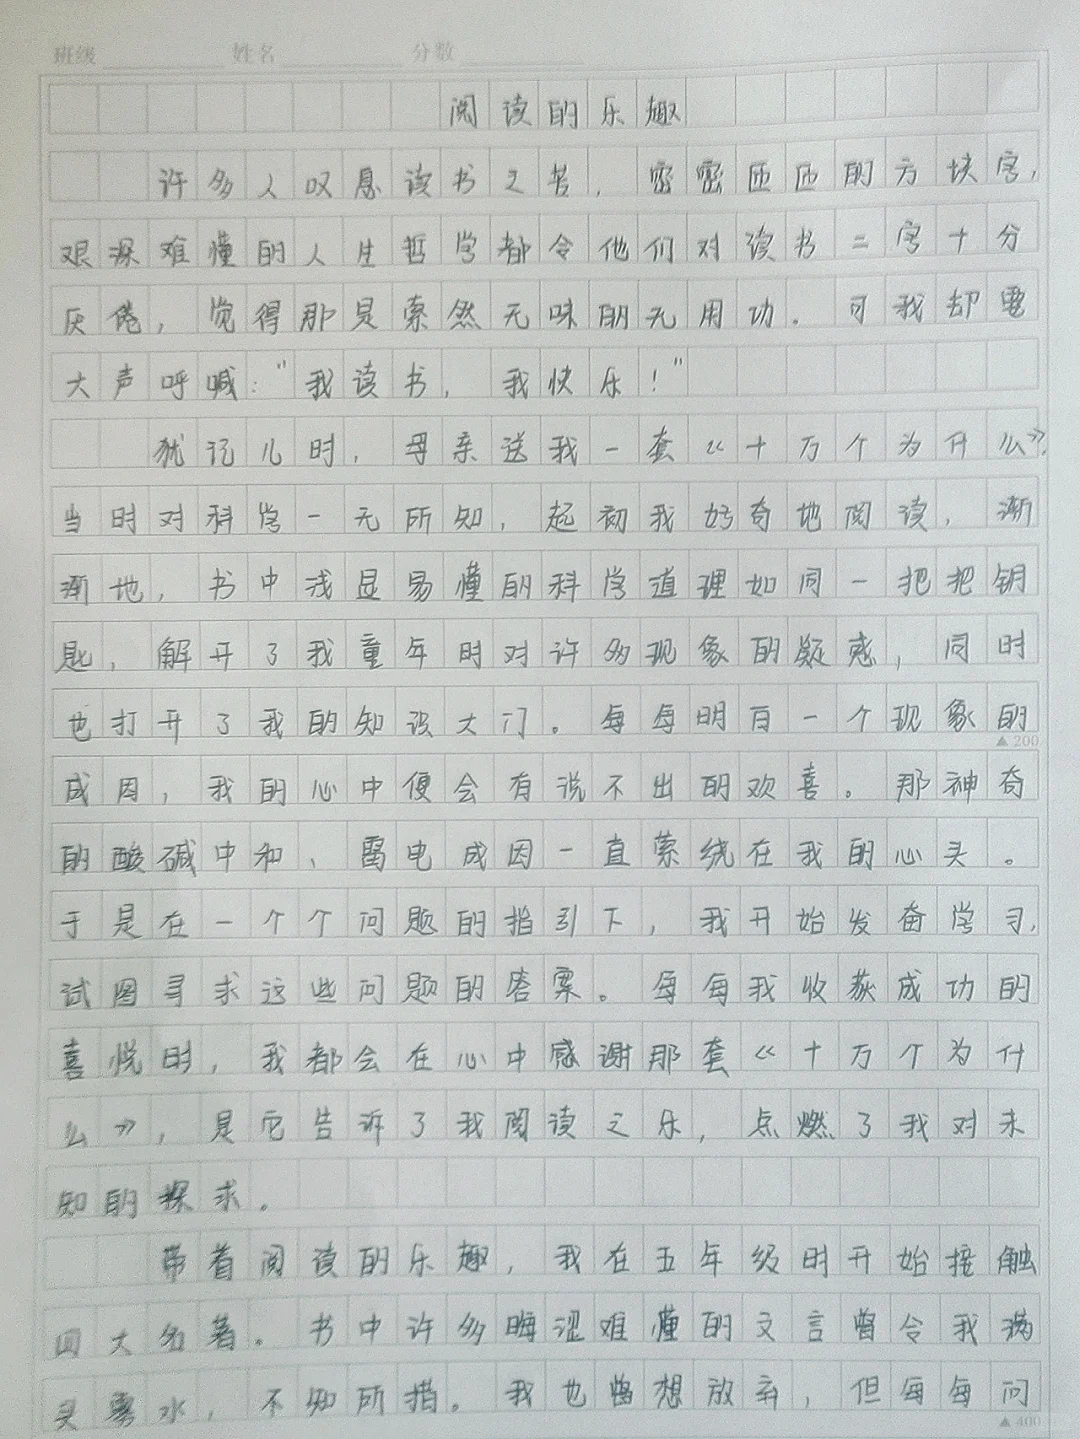 班级 姓名 分数
阅读的乐趣
许多人叹息读书之苦，密密匝匝的方块字，
艰深难懂的人生哲学都令他们对读书二字十分
厌倦，觉得那是索然无味的无用功。可我却要
大声呼喊："我读书，我快乐！"
犹记儿时，母亲送我一套《十万个为什么》，
当时对科学一无所知，起初我好奇地阅读，渐
渐地，书中浅显易懂的科学道理如同一把把钥
匙，解开了我童年时对许多现象的疑惑，同时
也打开了我的知识大门。每每明白一个现象的
成因，我的心中便会有说不出的欢喜。那神奇
▲200
的酸碱中和、雷电成因一直萦绕在我的心头。
于是在一个个问题的指引下，我开始发奋学习，
试图寻求这些问题的答案。每每我收获成功的
喜悦时，我都会在心中感谢那套《十万个为什
么》，是它告诉了我阅读之乐，点燃了我对未
知的探求。
带着阅读的乐趣，我在五年级时开始接触
四大名著。书中许多晦涩难懂的文言曾令我满
头雾水，不知所措。我也曾想放弃，但每每问
▲400